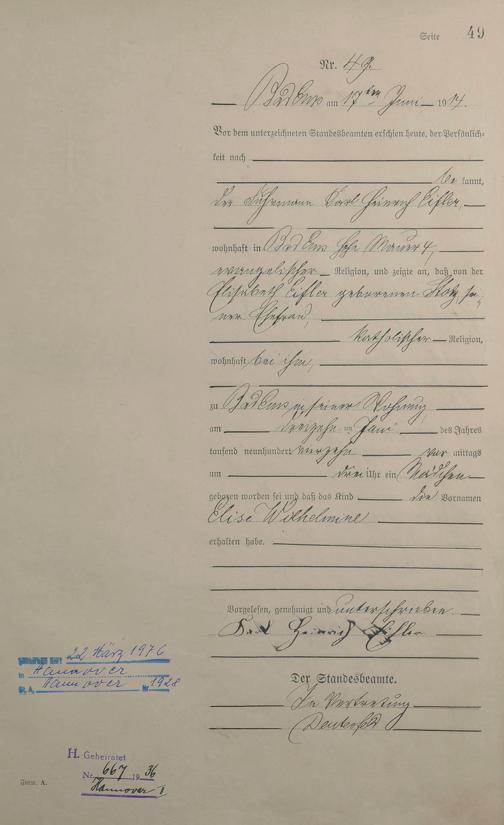 Seite 49
Nr. 49.
Bad Ems am 17ten Juni 1914.
Vor dem unterzeichneten Standesbeamten erschien heute, der Persönlich-
keit nach
be kannt,
der Fuhrmann Karl Heinrich Eifler,
wohnhaft in Bad Ems, Hohe Mauer 4,
evangelischer Religion, und zeigte an, daß von der
Elisabeth Eifler geborenen Stotz, sei-
ner Ehefrau,
katholischer Religion,
wohnhaft bei ihm,
zu Bad Ems in seiner Wohnung
am dreizehn ten Juni des Jahres
tausend neunhundert vierzehn vor mittags
um drei Uhr ein Mädchen
geboren worden sei und daß das Kind die Vornamen
Elise Wilhelmine
erhalten habe.
Vorgelesen, genehmigt und unterschrieben
Karl Heinrich Eifler
Der Standesbeamte.
In Vertretung
22 März 1976
in Hannover
St. A. Hannover Nr. 1928
H. Geheiratet
Nr. 667 1936
Hannover I
Form. A.